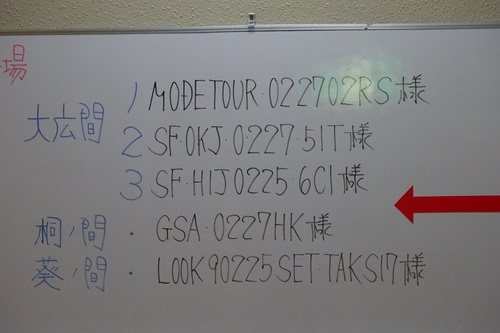 場
大広間 1 MODETOUR・022702RS様
2 SF・OKJ・0227・51T様
3 SF・HIJ0225・6C1様
桐ノ間・GSA・0227HK様
葵ノ間・LOOK90225SET・TAKS17様